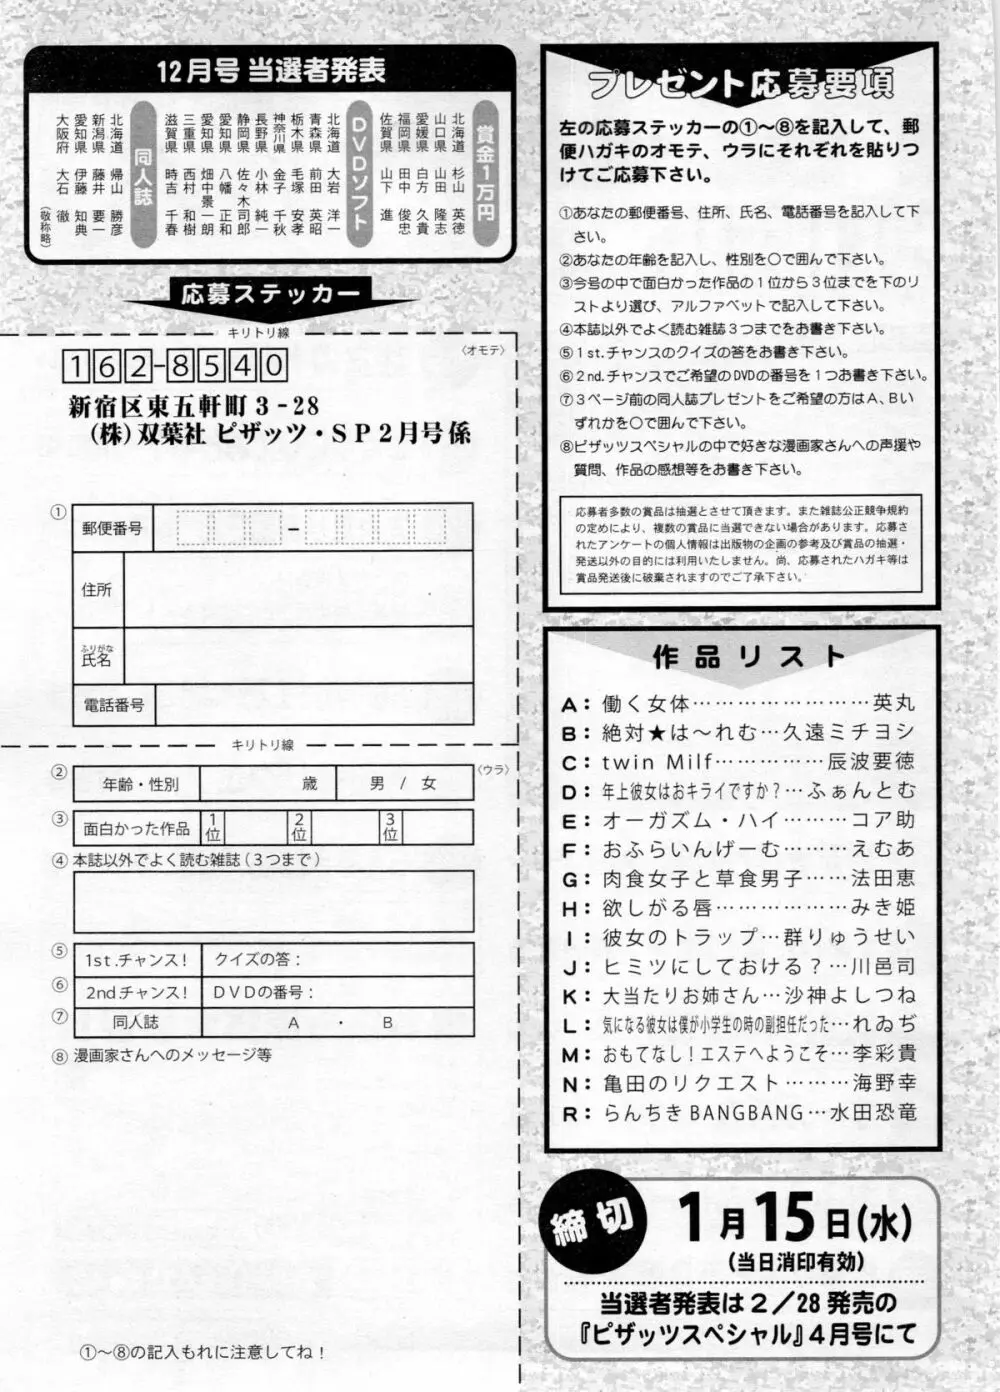 12月号 当選者発表
賞金1万円
北海道 杉山 英徳
山口県 山田 隆志
愛媛県 白方 久貴
福岡県 田中 俊忠
佐賀県 山下 進
DVDソフト
北海道 大岩 洋一
青森県 前田 英昭
栃木県 毛塚 安孝
神奈川県 金子 千秋
長野県 小林 純一
静岡県 佐々木 司郎
愛知県 八幡 正和
愛知県 畑中 景一朗
三重県 西村 和樹
滋賀県 時吉 千春
同人誌
北海道 帰山 勝彦
新潟県 藤井 要一
愛知県 伊藤 知典
大阪府 大石 徹
(敬称略)
応募ステッカー
キリトリ線
〈オモテ〉
162-8540
新宿区東五軒町3-28
(株)双葉社 ピザッツ・SP2月号係
①
郵便番号
住所
ふりがな
氏名
電話番号
キリトリ線
〈ウラ〉
② 年齢・性別 歳 男 / 女
③ 面白かった作品 1位 2位 3位
④ 本誌以外でよく読む雑誌(3つまで)
⑤ 1st.チャンス! クイズの答:
⑥ 2ndチャンス! DVDの番号:
⑦ 同人誌 A ・ B
⑧ 漫画家さんへのメッセージ等
①〜⑧の記入もれに注意してね!
プレゼント応募要項
左の応募ステッカーの①〜⑧を記入して、郵
便ハガキのオモテ、ウラにそれぞれを貼りつ
けてご応募下さい。
①あなたの郵便番号、住所、氏名、電話番号を記入して下
さい。
②あなたの年齢を記入し、性別を〇で囲んで下さい。
③今号の中で面白かった作品の1位から3位までを下のリ
ストより選び、アルファベットで記入して下さい。
④本誌以外でよく読む雑誌3つまでをお書き下さい。
⑤1st.チャンスのクイズの答をお書き下さい。
⑥2nd.チャンスでご希望のDVDの番号を1つお書き下さい。
⑦3ページ前の同人誌プレゼントをご希望の方はA、Bい
ずれかを〇で囲んで下さい。
⑧ピザッツスペシャルの中で好きな漫画家さんへの声援や
質問、作品の感想等をお書き下さい。
応募者多数の賞品は抽選とさせて頂きます。また雑誌公正競争規約
の定めにより、複数の賞品に当選できない場合があります。応募さ
れたアンケートの個人情報は出版物の企画の参考及び賞品の抽選・
発送以外の目的には利用いたしません。尚、応募されたハガキ等は
賞品発送後に破棄されますのでご了承下さい。
作品リスト
A:働く女体……………………英丸
B:絶対★は〜れむ…久遠ミチヨシ
C:twin Milf……………辰波要徳
D:年上彼女はおキライですか?…ふぁんとむ
E:オーガズム・ハイ………コア助
F:おふらいんげーむ………えむあ
G:肉食女子と草食男子……法田恵
H:欲しがる唇………………みき姫
I:彼女のトラップ…群りゅうせい
J:ヒミツにしておける?…川邑司
K:大当たりお姉さん…沙神よしつね
L:気になる彼女は僕が小学生の時の副担任だった…れゐぢ
M:おもてなし!エステへようこそ…李彩貴
N:亀田のリクエスト………海野幸
R:らんちきBANGBANG…水田恐竜
締切
1月15日(水)
(当日消印有効)
当選者発表は2/28発売の
『ピザッツスペシャル』4月号にて